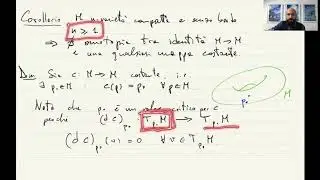 Corollario. M n-varietà compatta e senza bordo
n ≥ 1
⇒ ∄ omotopia tra identità M → M
e una qualsiasi mappa costante.
Dim. Sia c: M → M costante, i.e.
∃ p₀ ∈ M c(p) = p₀ ∀ p ∈ M
p₀ M
Noto che p₀ è un valore critico per c
perché (dc)p₀ : Tp₀M → Tp₀M
(dc)p₀(v) = 0 ∀ v ∈ Tp₀M